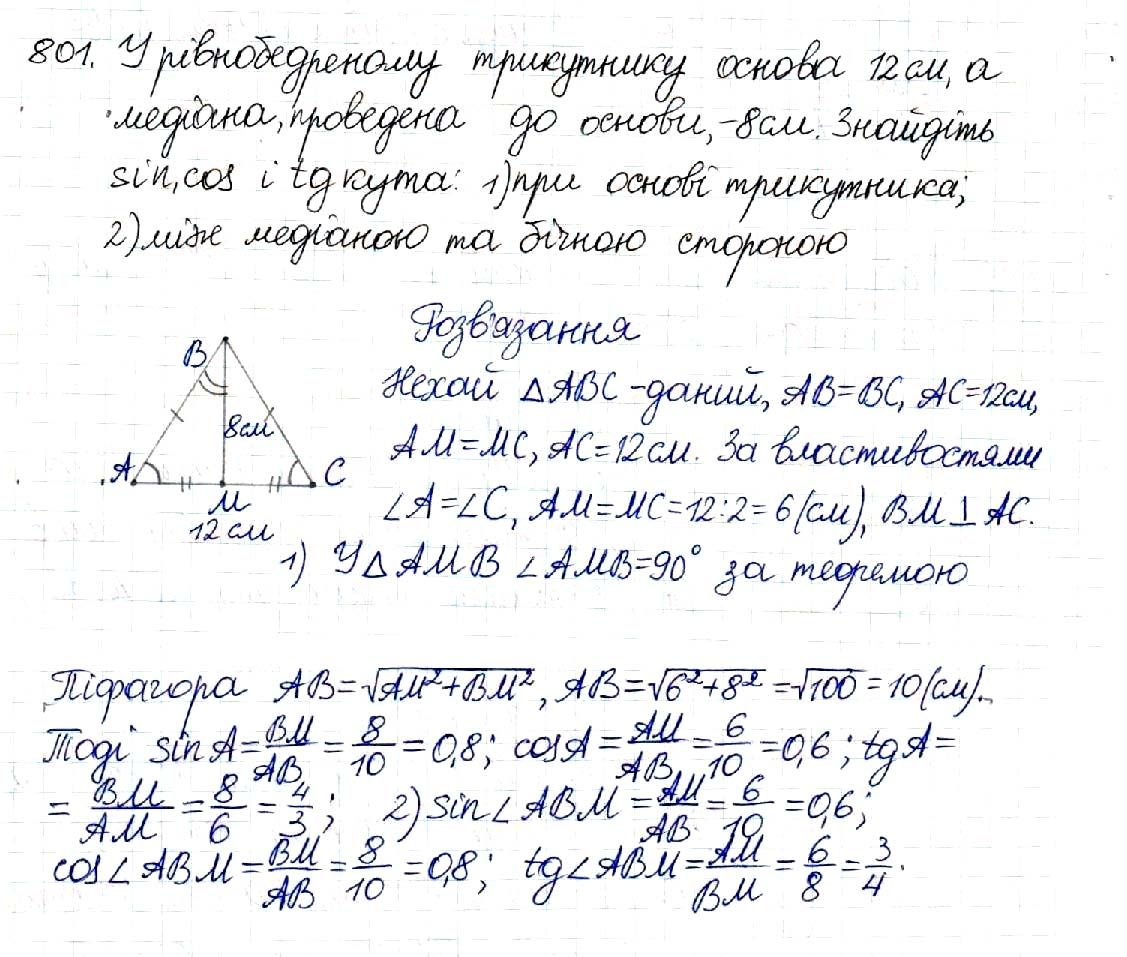 801. У рівнобедреному трикутнику основа 12 см, а
медіана, проведена до основи, – 8 см. Знайдіть
sin, cos і tg кута: 1) при основі трикутника;
2) між медіаною та бічною стороною
Розв'язання
B
8 см
A
C
M
12 см
Нехай △ABC – даний, AB=BC, AC=12 см,
AM=MC, AC=12 см. За властивостями
∠A=∠C, AM=MC=12:2=6 (см), BM⊥AC.
1) У △AMB ∠AMB=90° за теоремою
Піфагора AB=√AM²+BM², AB=√6²+8²=√100=10 (см).
Тоді sin A=BM/AB=8/10=0,8; cos A=AM/AB=6/10=0,6; tg A=
=BM/AM=8/6=4/3; 2) sin∠ABM=AM/AB=6/10=0,6;
cos∠ABM=BM/AB=8/10=0,8; tg∠ABM=AM/BM=6/8=3/4.